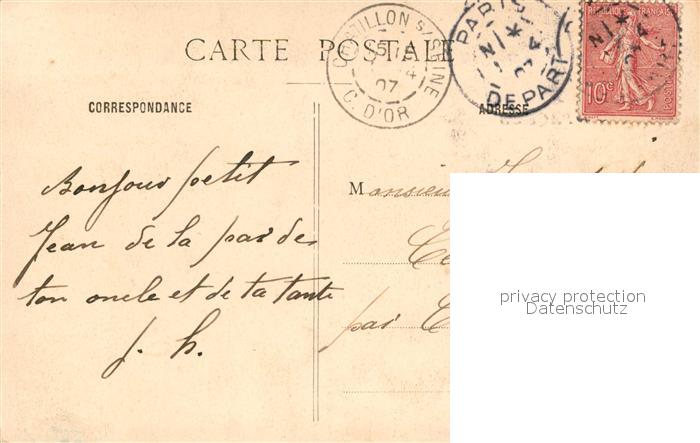 CARTE POSTALE
CHATILLON S/SEINE
C. D'OR
07
PARIS
DEPART
07
REPUBLIQUE FRANÇAISE
10c
CORRESPONDANCE
ADRESSE
Bonjour petit
Jean de la par de
ton oncle et de ta tante
J. h.
Monsieur
par
privacy protection
Datenschutz